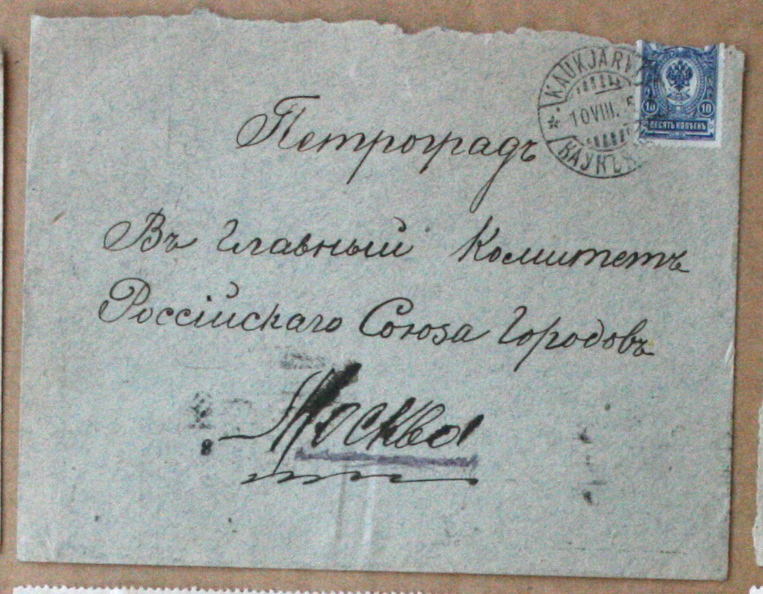 KAUKJÄRVI
10 VIII.
КАУКЪ
10 10
ДЕСЯТЬ КОПѢЕКЪ
Петроградъ
Въ Главный Комитетъ
Россійскаго Союза Городовъ
Москва
8